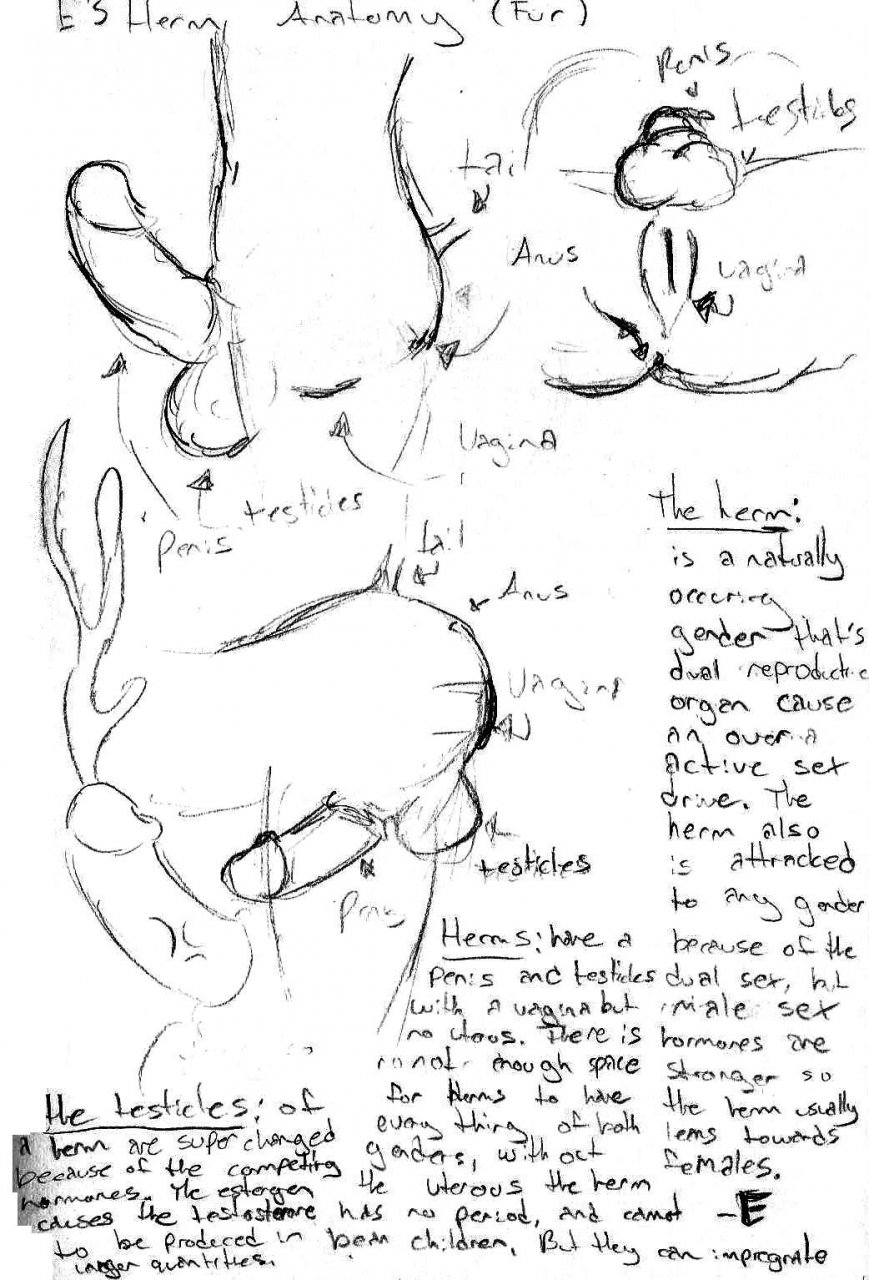 E's Herm Anatomy (Fur)
Penis
testicles
tail
Anus
vagina
Vagina
testicles
Penis
tail
Anus
Vagina
testicles
Penis
The herm:
is a naturally
occuring
gender that's
dual reproductive
organ cause
an over a
active sex
drive. The
herm also
is attracked
to any gender
because of the
dual sex, but
male sex
hormones are
stronger so
the herm usually
lens towards
females.
-E
Herms: have a
penis and testicles
with a vagina but
no uterous. There is
not enough space
for Herms to have
every thing of both
genders, with out
the uterous the herm
has no period, and cannot
bean children, But they can impregnate
The testicles: of
a herm are super changed
because of the competing
hormones. The estergen
causes the testosterone
to be produced in
larger quantities.